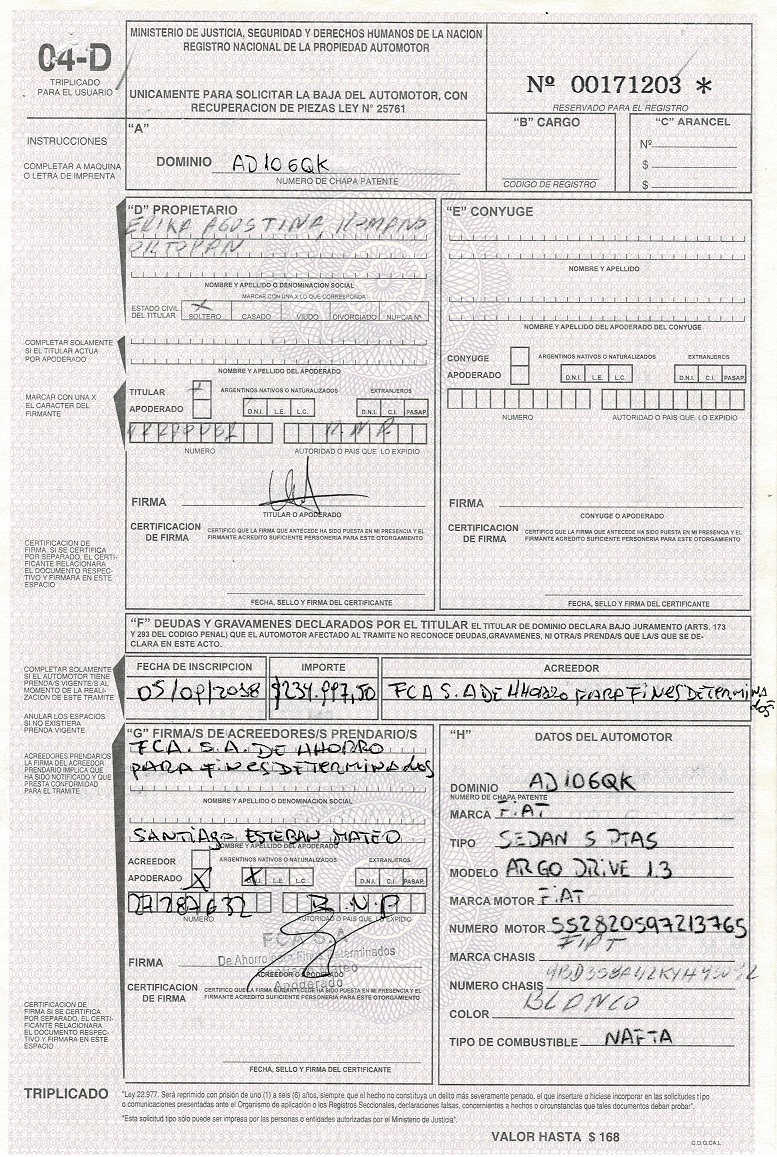 04-D
TRIPLICADO
PARA EL USUARIO
MINISTERIO DE JUSTICIA, SEGURIDAD Y DERECHOS HUMANOS DE LA NACION
REGISTRO NACIONAL DE LA PROPIEDAD AUTOMOTOR
UNICAMENTE PARA SOLICITAR LA BAJA DEL AUTOMOTOR, CON
RECUPERACION DE PIEZAS LEY N° 25761
Nº 00171203 *
RESERVADO PARA EL REGISTRO
INSTRUCCIONES
COMPLETAR A MAQUINA
O LETRA DE IMPRENTA
"A"
DOMINIO AD106QK
NUMERO DE CHAPA PATENTE
"B" CARGO
CODIGO DE REGISTRO
"C" ARANCEL
Nº
$
$
"D" PROPIETARIO
ERIKA AGUSTINA ROMANO
NOMBRE Y APELLIDO O DENOMINACION SOCIAL
MARCAR CON UNA X LO QUE CORRESPONDA
ESTADO CIVIL
DEL TITULAR
X
SOLTERO CASADO VIUDO DIVORCIADO NUPCIA Nº
COMPLETAR SOLAMENTE
SI EL TITULAR ACTUA
POR APODERADO
NOMBRE Y APELLIDO DEL APODERADO
MARCAR CON UNA X
EL CARACTER DEL
FIRMANTE
TITULAR
APODERADO
ARGENTINOS NATIVOS O NATURALIZADOS
D.N.I. L.E. L.C.
EXTRANJEROS
D.N.I. C.I. PASAP.
NUMERO
AUTORIDAD O PAIS QUE LO EXPIDIO
FIRMA
TITULAR O APODERADO
CERTIFICACION
DE FIRMA
CERTIFICO QUE LA FIRMA QUE ANTECEDE HA SIDO PUESTA EN MI PRESENCIA Y EL
FIRMANTE ACREDITO SUFICIENTE PERSONERIA PARA ESTE OTORGAMIENTO
CERTIFICACION DE
FIRMA. SI SE CERTIFICA
POR SEPARADO, EL CERTI-
FICANTE RELACIONARA
EL DOCUMENTO RESPEC-
TIVO Y FIRMARA EN ESTE
ESPACIO
FECHA, SELLO Y FIRMA DEL CERTIFICANTE
"E" CONYUGE
NOMBRE Y APELLIDO
NOMBRE Y APELLIDO DEL APODERADO DEL CONYUGE
CONYUGE
APODERADO
ARGENTINOS NATIVOS O NATURALIZADOS
D.N.I. L.E. L.C.
EXTRANJEROS
D.N.I. C.I. PASAP.
NUMERO
AUTORIDAD O PAIS QUE LO EXPIDIO
FIRMA
CONYUGE O APODERADO
CERTIFICACION
DE FIRMA
CERTIFICO QUE LA FIRMA QUE ANTECEDE HA SIDO PUESTA EN MI PRESENCIA Y EL
FIRMANTE ACREDITO SUFICIENTE PERSONERIA PARA ESTE OTORGAMIENTO
FECHA, SELLO Y FIRMA DEL CERTIFICANTE
"F" DEUDAS Y GRAVAMENES DECLARADOS POR EL TITULAR EL TITULAR DE DOMINIO DECLARA BAJO JURAMENTO (ARTS. 173
Y 293 DEL CODIGO PENAL) QUE EL AUTOMOTOR AFECTADO AL TRAMITE NO RECONOCE DEUDAS,GRAVAMENES, NI OTRA/S PRENDA/S QUE LA/S QUE SE DE-
CLARA EN ESTE ACTO.
COMPLETAR SOLAMENTE
SI EL AUTOMOTOR TIENE
PRENDA/S VIGENTE/S AL
MOMENTO DE LA REALI-
ZACION DE ESTE TRAMITE
ANULAR LOS ESPACIOS
SI NO EXISTIERA
PRENDA VIGENTE
FECHA DE INSCRIPCION
IMPORTE
ACREEDOR
$239.997,50
FCA S.A DE AHORRO PARA FINES DETERMINADOS
ACREEDORES PRENDARIOS
LA FIRMA DEL ACREEDOR
PRENDARIO IMPLICA QUE
HA SIDO NOTIFICADO Y QUE
PRESTA CONFORMIDAD
PARA EL TRAMITE.
"G" FIRMA/S DE ACREEDORES/S PRENDARIO/S
FCA. S.A. DE AHORRO
PARA FINES DETERMINADOS
NOMBRE Y APELLIDO O DENOMINACION SOCIAL
SANTIAGO ESTEBAN MATEO
NOMBRE Y APELLIDO DEL APODERADO
ACREEDOR
APODERADO X
ARGENTINOS NATIVOS O NATURALIZADOS
X
D.N.I. L.E. L.C.
EXTRANJEROS
D.N.I. C.I. PASAP.
27287632
R.N.P
NUMERO
AUTORIDAD O PAIS QUE LO EXPIDIO
FCA S.A
De Ahorro para Fines Determinados
FIRMA
ACREEDOR O APODERADO
Apoderado
CERTIFICACION
DE FIRMA
CERTIFICO QUE LA FIRMA QUE ANTECEDE HA SIDO PUESTA EN MI PRESENCIA Y EL
FIRMANTE ACREDITO SUFICIENTE PERSONERIA PARA ESTE OTORGAMIENTO
CERTIFICACION DE
FIRMA SI SE CERTIFICA
POR SEPARADO, EL CERTI-
FICANTE RELACIONARA
EL DOCUMENTO RESPEC-
TIVO Y FIRMARA EN ESTE
ESPACIO
FECHA, SELLO Y FIRMA DEL CERTIFICANTE
"H" DATOS DEL AUTOMOTOR
DOMINIO AD106QK
NUMERO DE CHAPA PATENTE
MARCA FIAT
TIPO SEDAN 5 PTAS
MODELO ARGO DRIVE 1.3
MARCA MOTOR FIAT
NUMERO MOTOR 552820597213765
MARCA CHASIS FIAT
NUMERO CHASIS
COLOR BLANCO
TIPO DE COMBUSTIBLE NAFTA
TRIPLICADO
"Ley 22.977. Será reprimido con prisión de uno (1) a seis (6) años, siempre que el hecho no constituya un delito más severamente penado, el que insertare o hiciese incorporar en las solicitudes tipo
o comunicaciones presentadas ante el Organismo de aplicación o los Registros Seccionales, declaraciones falsas, concernientes a hechos o circunstancias que tales documentos deban probar".
"Esta solicitud tipo sólo puede ser impresa por las personas o entidades autorizadas por el Ministerio de Justicia".
VALOR HASTA $ 168
C.D.G.CA.L